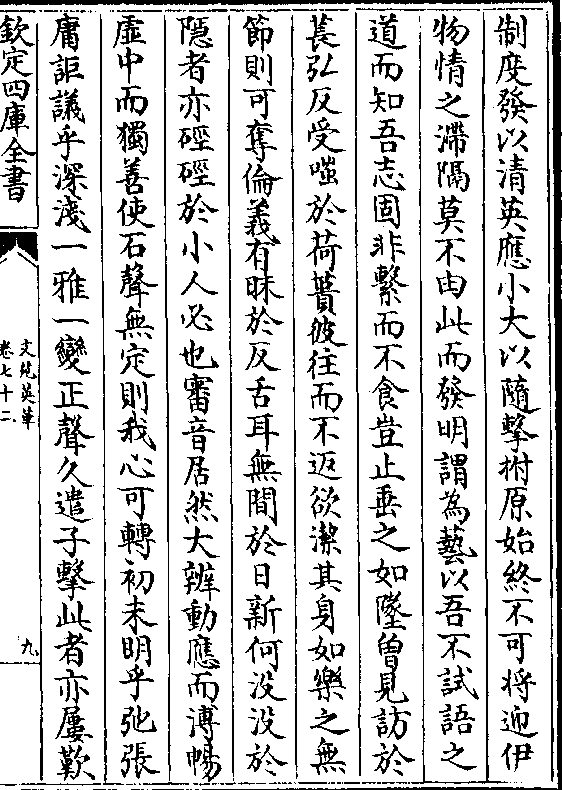 制度發以清英應小大以隨擊拊原始終不可將迎伊
物情之滯隔莫不由此而發明謂為藝以吾不試語之
道而知吾志固非繫而不食豈止垂之如墜曾見訪於
萇弘反受嗤於荷蕢彼往而不返欲潔其身如樂之無
節則可奪倫義有昧於反舌耳無間於日新何没没於
隠者亦硜硜於小人必也審音居然大辨動應而溥暢
虚中而獨善使石聲無定則我心可轉初未明乎弛張
庸詎議乎深淺一雅一變正聲久遣子擊此者亦屢歎
欽定四庫全書
文苑英華
卷七十二
九